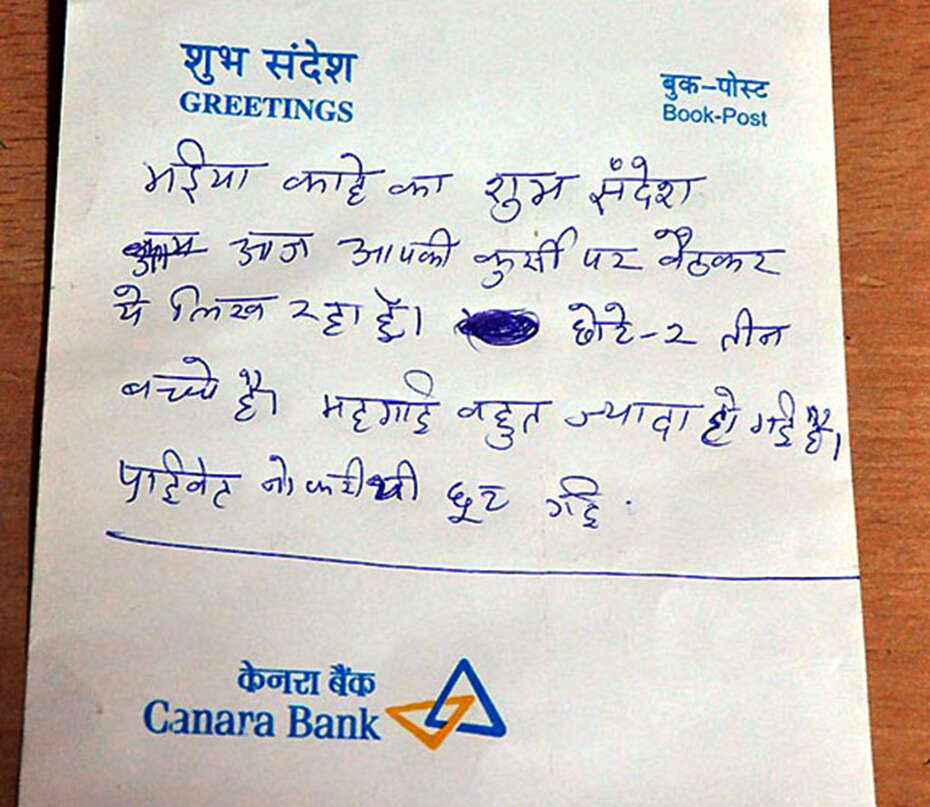 शुभ संदेश
GREETINGS
बुक-पोस्ट
Book-Post
भईया काहे का शुभ संदेश
आज आपकी कुर्सी पर बैठकर
ये लिख रहा हूँ। छोटे-२ तीन
बच्चे है। महगाई बहुत ज्यादा हो गई है।
प्राईवेट नोकरी थी छूट गई
केनरा बैंक
Canara Bank